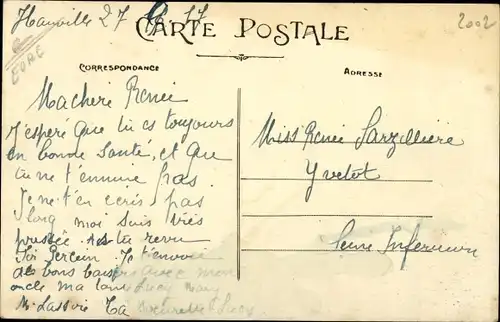 Hauville 27 17
CARTE POSTALE
2002
EURE
CORRESPONDANCE
ADRESSE
Ma chere Renée
J'espére que tu es toujours
en bonne santé, et que
tu ne t'ennuie pas.
Je ne t'en ecris pas
long moi suis très
pressée. As tu revu
Je t'envoie
de bons bais avec mon
oncle ma tante Lucy
Ta Lucy
Miss Renée Sarzilliere
Yvetot
Seine Inferieure